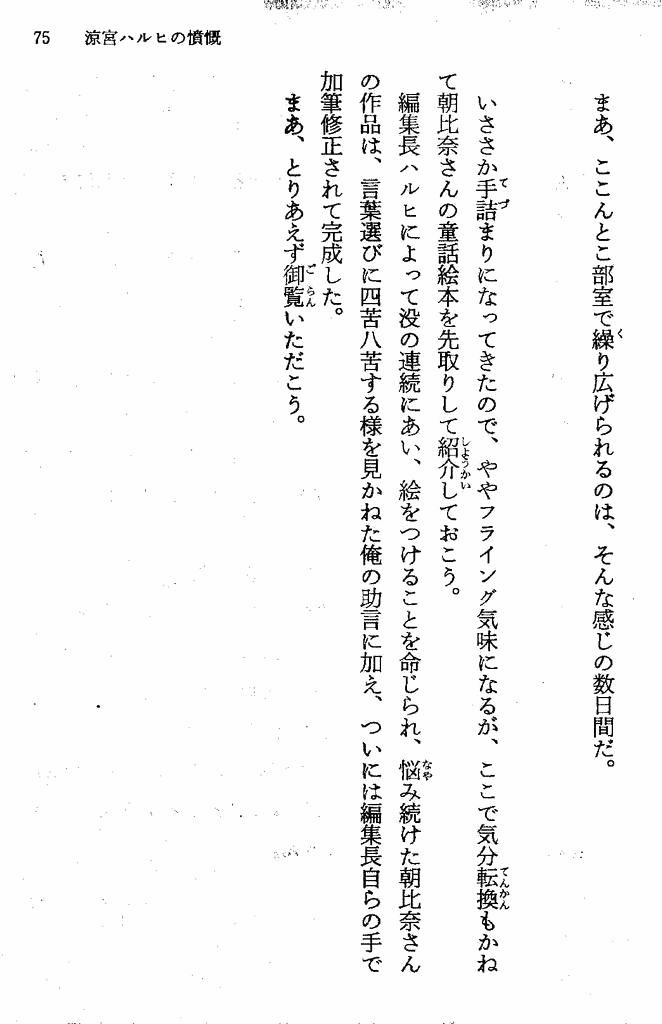 75　涼宮ハルヒの憤慨
まあ、ここんとこ部室で繰り広げられるのは、そんな感じの数日間だ。
いささか手詰まりになってきたので、ややフライング気味になるが、ここで気分転換もかね
て朝比奈さんの童話絵本を先取りして紹介しておこう。
編集長ハルヒによって没の連続にあい、絵をつけることを命じられ、悩み続けた朝比奈さん
の作品は、言葉選びに四苦八苦する様を見かねた俺の助言に加え、ついには編集長自らの手で
加筆修正されて完成した。
まあ、とりあえず御覧いただこう。